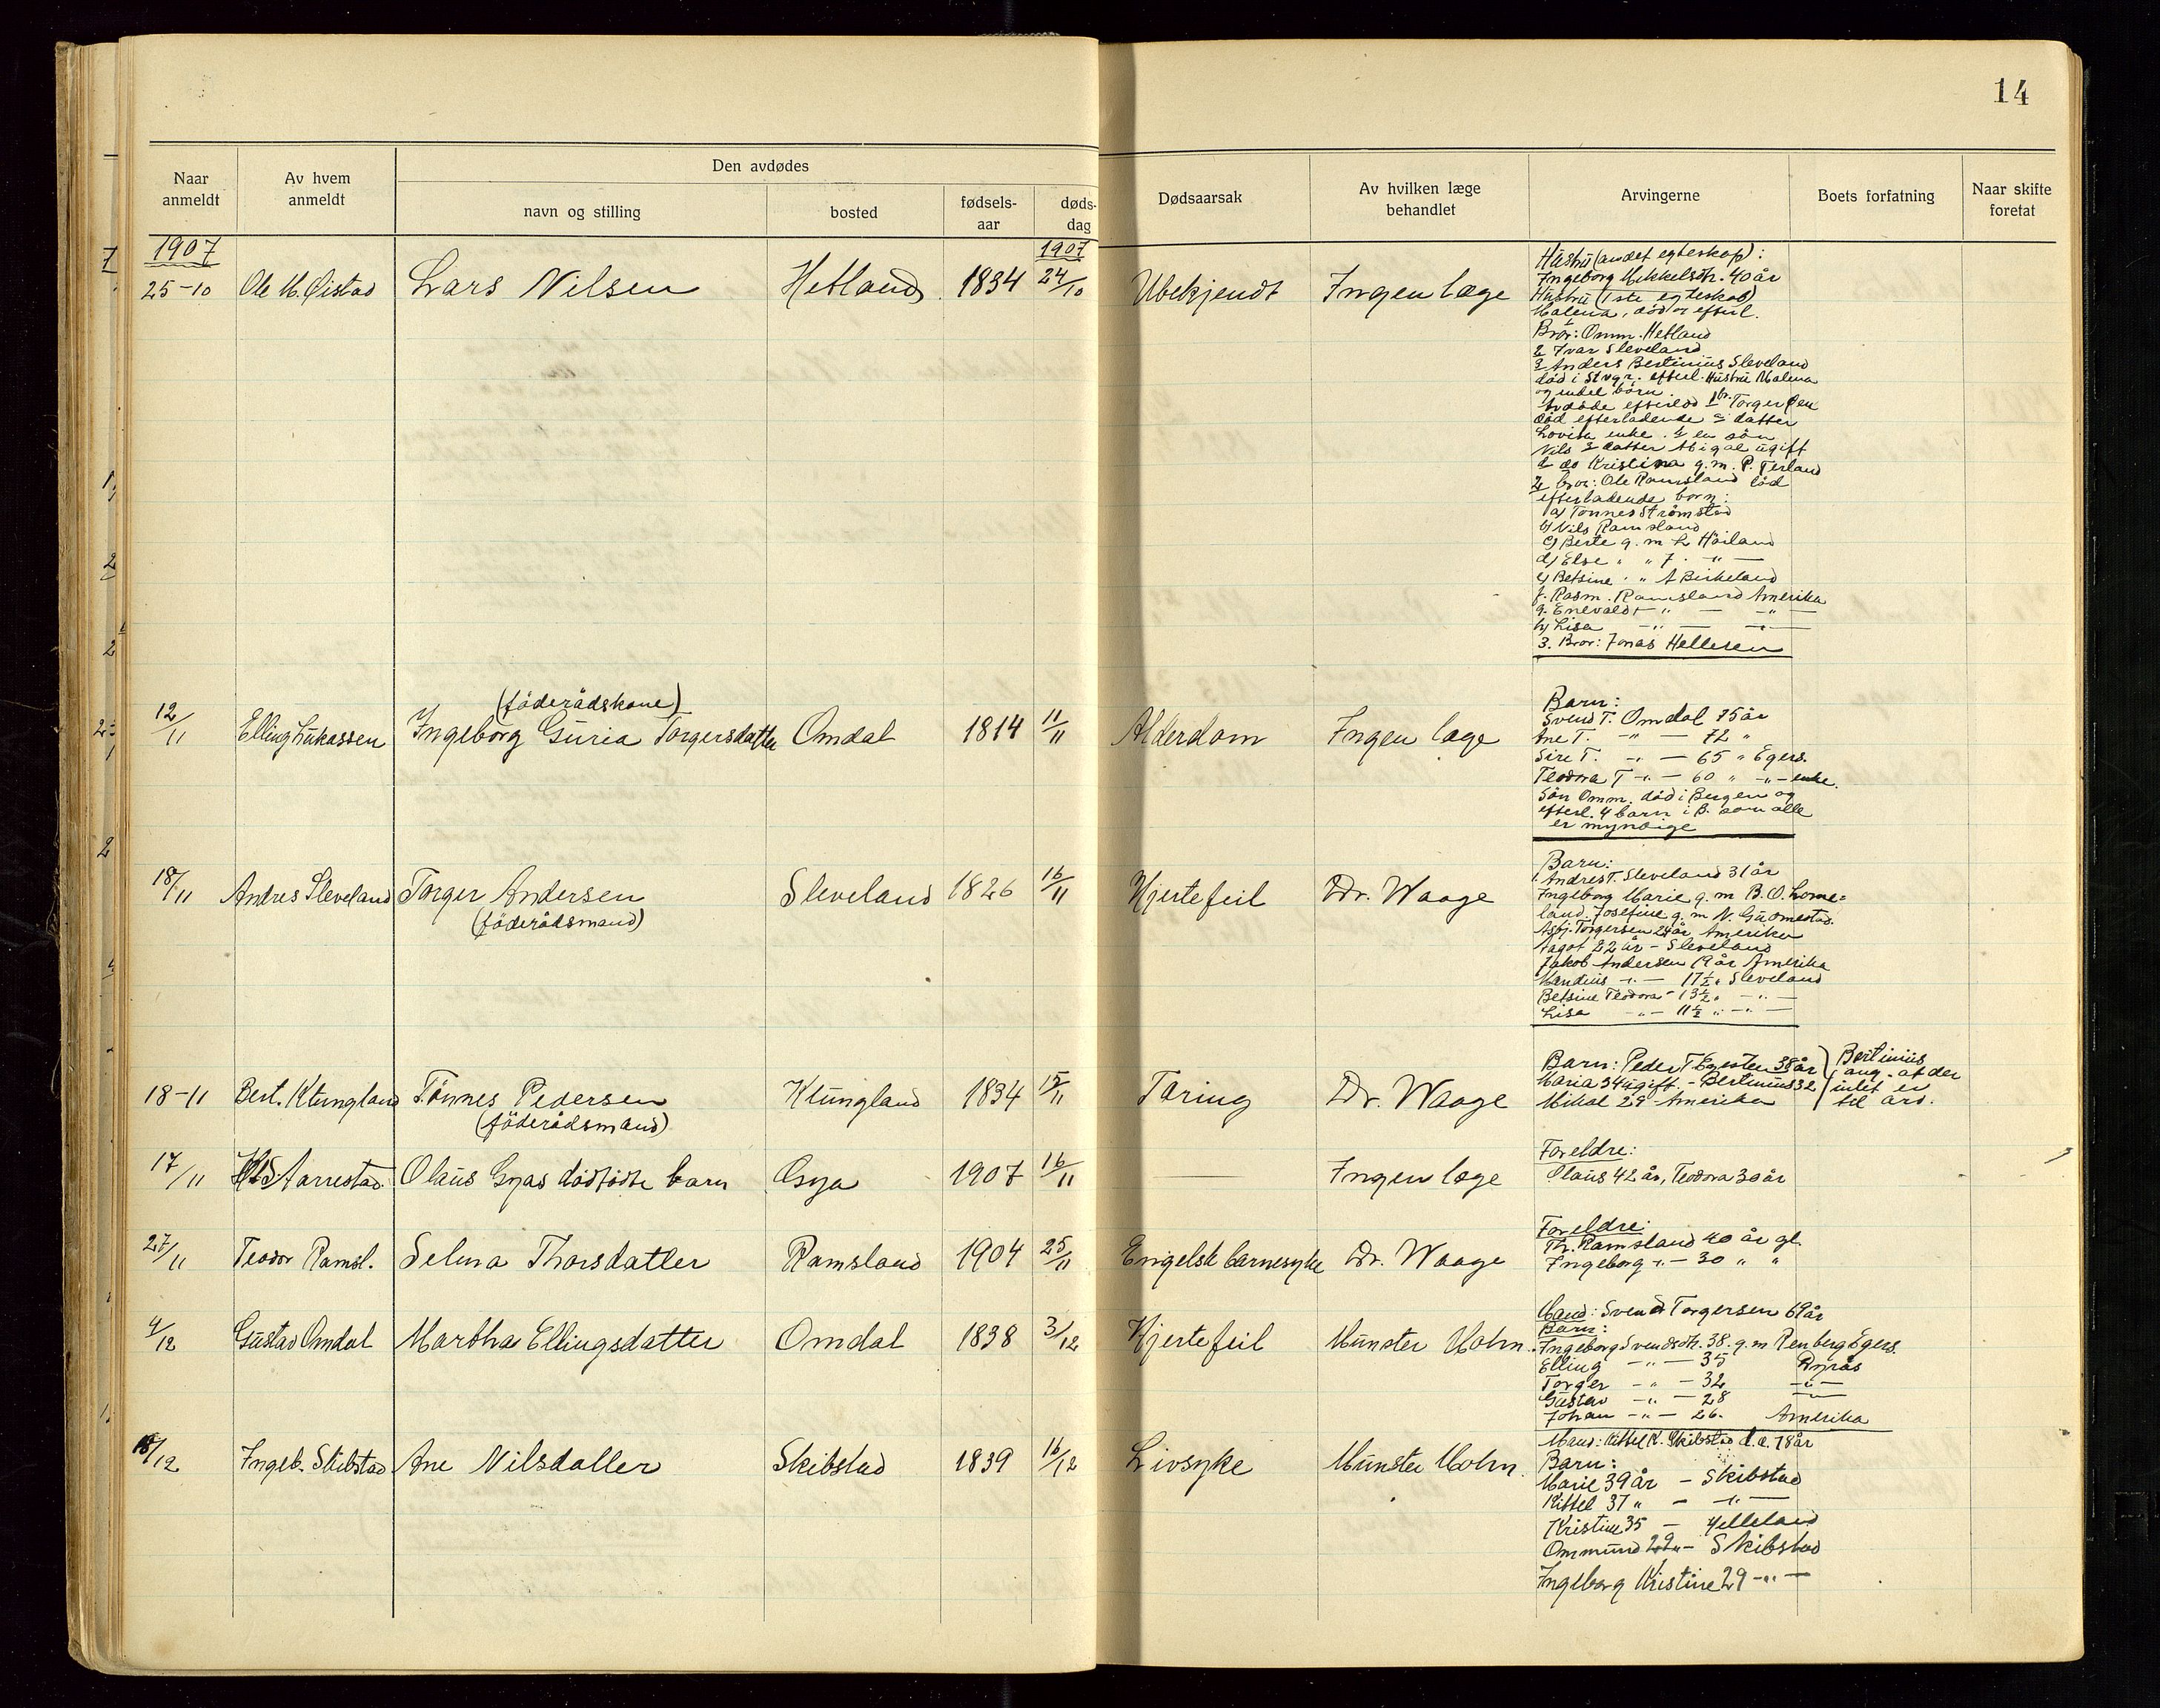 14
Naar anmeldt
Av hvem anmeldt
Den avdødes
navn og stilling
bosted
fødsels-aar
døds-dag
Dødsaarsak
Av hvilken læge behandlet
Arvingerne
Boets forfatning
Naar skifte foretat
1907
1907
25-10 Ole M. Öistad Lars Nilsen Hetland 1834 24/10 Ubekjendt Ingen læge
Hustru (andet egteskap):
Ingeborg Mikkelsdtr. 40 år
Hustru (1ste egteskab)
Malena, död og efterl.
Bror: Omm. Hetland
2 Ivar Sleveland
3 Anders Bertinius Sleveland
död i Stvgr. efterl. Hustru Malena
og intet börn
Avdöde efterlod 1 br. Torger Pen
död efterladende datter
Lovisa enke. 2 en sön
Nils 3 datter Abigal ugift
4 do Kristina g.m. P. Terland
2 bror: Ole Ramsland död
efterladende born:
a) Tonnes Strömstad
b) Nils Ramsland
c) Berte g. m L Höiland
d) Else " " 7. — " —
e) Betsine " " A Birkeland
f. Rasm. Ramsland Amerika
g. Enevald — " — — " —
h) Lisa — " — — " —
3. Bror: Jonas Hellesen
(föderådskone)
12/11 Elling Lukassen Ingeborg Guria Torgersdatter Omdal 1814 11/11 Alderdom Ingen læge
Barn:
Svend T. Omdal 75 år
Ane T. — " — 72 "
Sire T. — " — 65 " Egers.
Teodora T — " — 60 " — " — enke.
Sön Omm. död i Bergen og
efterl. 4 barn i B. som alle
er myndige
18/11 Andres Sleveland Torger Andersen Sleveland 1826 16/11 Hjertefeil Dr. Waage
(föderådsmand)
Barn:
Andres T. Sleveland 31 år
Ingeborg Marie g. m B. O. Lome=
land. Josefine g. m N. Guomestad.
Asbj. Torgersen 24 år Amerika
Aagot 22 år - Sleveland
Jakob Andersen 19 år Amerika
Mandius — " — 17½ " Sleveland
Betsine Teodora - 13½ " — " —
Lisa — " — 11½ " — " —
18-11 Bert. Klungland Tönnes Pedersen Klungland 1834 15/11 Tæring Dr. Waage
(föderådsmand)
Barn: Peder T Egesten 38 år
Maria 34 ugift. - Bertinius 32
Mikal 29 Amerika
Bertinius
ang. at der
intet er
til arv.
17/11 Aarrestad Olaus Gyas dödfödte barn Gya 1907 16/11 — Ingen læge
Foreldre:
Olaus 42 år, Teodora 30 år
27/11 Teodor Ramsl. Selma Thorsdatter Ramsland 1904 25/11 Engelsk barnesyke Dr. Waage
Foreldre:
Th. Ramsland 40 år gl.
Ingeborg — " — 30 " "
4/12 Gustav Omdal Martha Ellingsdatter Omdal 1838 3/12 Hjertefeil Munster Mohn.
Mand: Svend Torgersen 69 år
Barn:
Ingeborg Svendsdtr. 38. g. m Renberg Egers.
Elling — " — 35 Dyrås
Torger — " — 32 — " —
Gustav — " — 28 — " —
Johan — " — 26. Amerika
18/12 Ingeb. Skibstad Ane Nilsdatter Skibstad 1839 16/12 Livsyke Munster Mohn.
Mand: Kittel K. Skibstad d. e. 78 år
Barn:
Marie 39 år - Skibstad
Kittel 37 " - — " —
Kristine 35 - Helleland
Ommund 22 " - Skibstad
Ingeborg Kristine 29 — " —